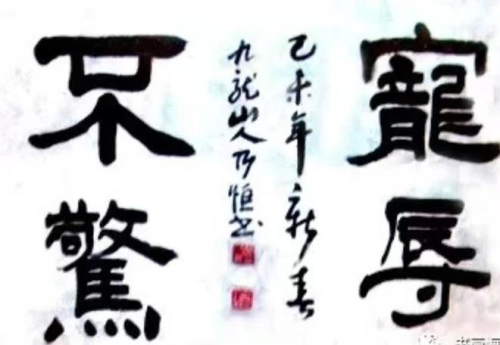 寵辱
不驚
己未年新春
九龙山人乃恒书